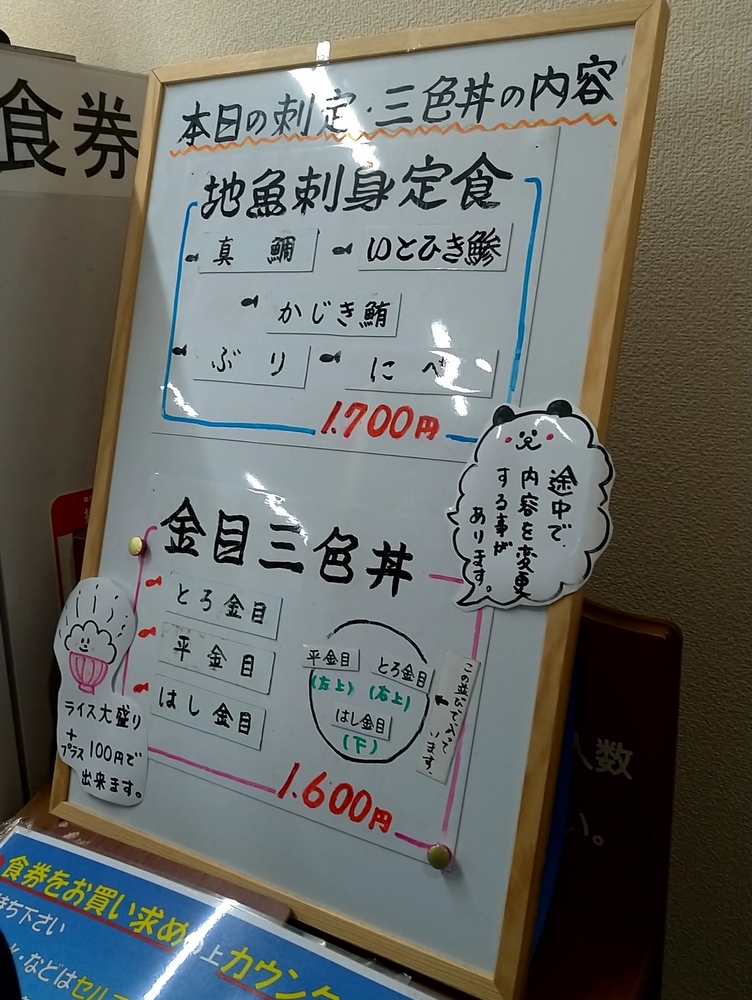 食券
本日の刺定・三色丼の内容
地魚刺身定食
真鯛
いとひき鰺
かじき鮪
ぶり
にべ
1.700円
途中で
内容を変更
する事が
あります。
金目三色丼
とろ金目
平金目
はし金目
平金目
(左上)
とろ金目
(右上)
はし金目
(下)
この並びで入って
います。
1.600円
ライス大盛り
+
プラス100円で
出来ます。
人数
い。
食券をお買い求めの上カウンタ
待ち下さい
などはセル